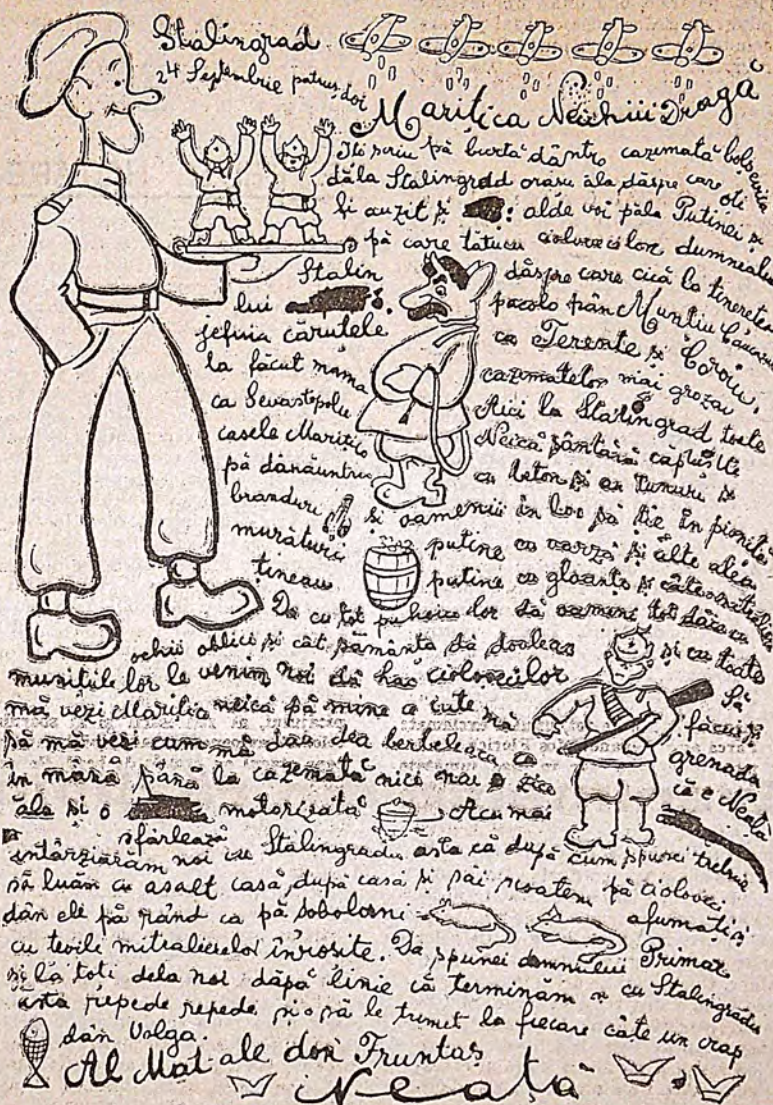 Stalingrad
24 Septembrie patruș doi
Marițica Neichii Dragă
Îți scriu pă burtă dântro cazemată bolșevică
dăla Stalingrad orașu ăla dăspre care oți
fi auzit și alde voi păla Putinei și
pă care tătucu ciolovecilor dumnealui
Stalin dăspre care cică la tinerețea
lui pacolo pân Munțiu Caucazu
jefuia căruțele ca Terente și Coroiu,
la făcut mama cazematelor mai grozav
ca Sevastopolu Aici la Stalingrad toate
casele Marițico Neică sântără căptușite
pă dânăuntru cu beton și cu tunuri și
branduri și oamenii în loc să ție în pivniță
murături putine cu varză și alte alea
țineau putine cu gloanțe și câte o mitralieră
Da cu tot puhoiu lor dă oameni toți dăia cu
ochii oblici și cât pământu dă doaleau și cu toate
munițiile lor le venim noi dă hac ciolovecilor Să
mă vezi Marițico neică pă mine ce iute mă făcui și
să mă vezi cum mă dau dea berbeleacu cu grenada
în mână până la cazemată nici nai zice că e Neață
ăla și o motorizată Acu mai
sfârlează
întârziarăm noi cu Stalingradu ăsta că după cum spusei trebuie
să luăm cu asalt casă după casă și săi scoatem pă cioloveci
dân ele pă rând ca pă șobolanii afumați
cu țevili mitralierelor înroșite. Da spunei domnului Primar
și la toți dela noi dăpă linie că terminăm și cu Stalingradu
ăsta repede repede și o să le trimet la fiecare câte un crap
dân Volga.
Al Mat ale don Fruntaș
Neață